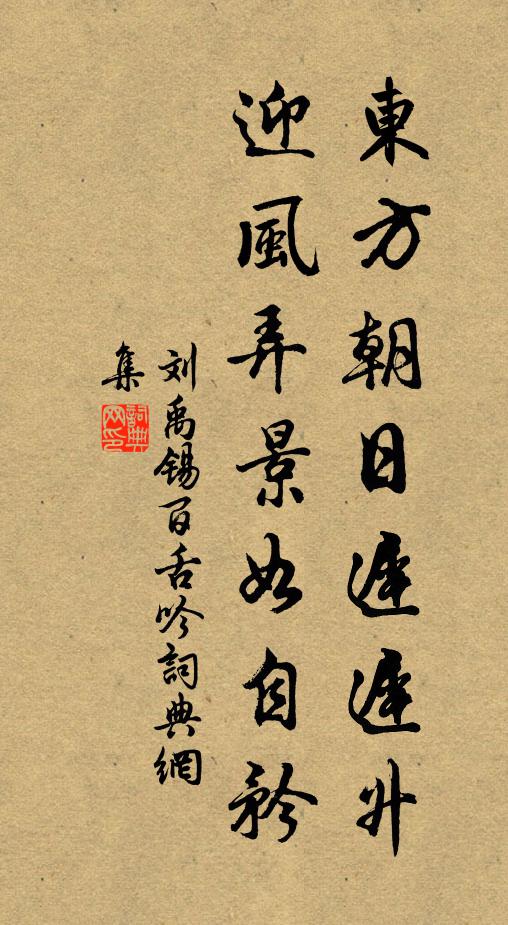 東方朝日遲遲升
迎風弄景如自矜
刘禹锡百舌吟詞典網
集
詞典
网印